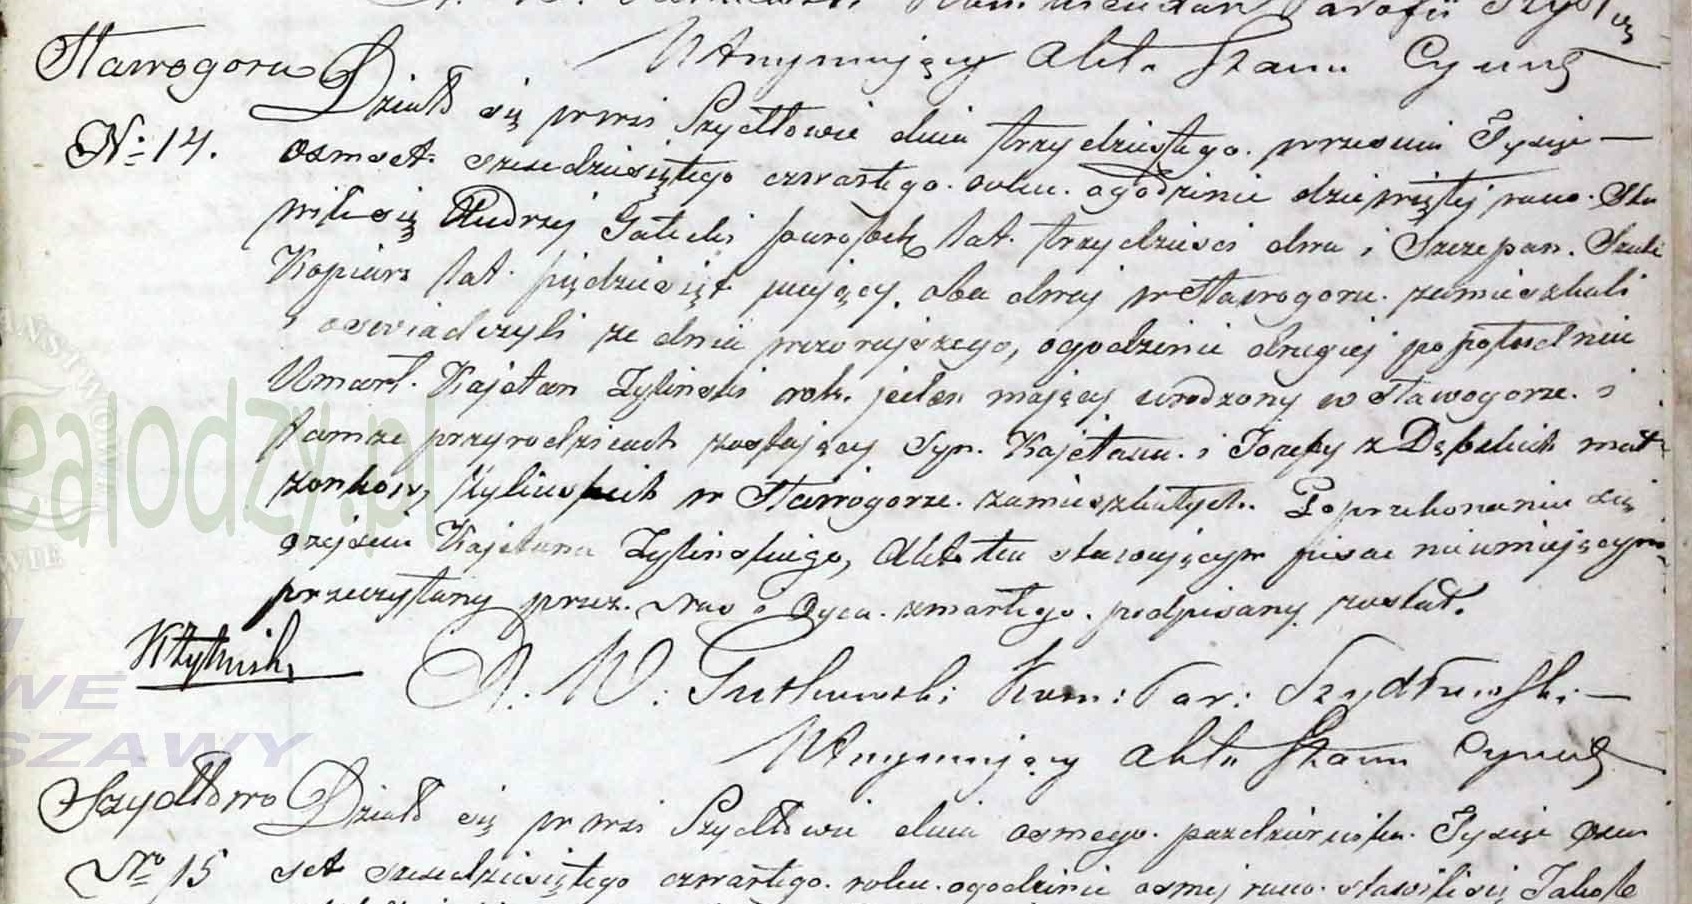 Utrzymujący Akta Stanu Cywil
Stawogora
N: 14.
Działo się w wsi Szydłowie dnia trzydziestego wrzesnia Tysiąc
osmset szescdziesiątego czwartego roku ogodzinie dziewiątej rano. Sta
wili się Andrzej Gałecki parobek lat trzydziesci dwa i Szczepan
Kopiarz lat piędziesiąt mający, oba dwaj w Stawogorze zamieszkali
i oswiadczyli ze dnia wczorajszego, ogodzinie drugiej popołudniu
Umarł Kajetan Zyliński rok jeden mający urodzony w Stawogorze i
tamze przyrodzicach zostający Syn Kajetana i Jozefy z Dębskich mał
zonkow, Żylinskich w Stawogorze zamieszkałych. Poprzekonaniu się
ozejsciu Kajetana Zylińskiego, Akt ten stawającym pisac nieumiejącym
przeczytany przez nas i Oyca zmarłego podpisany został.
K Żyliński
X. W. Kom: Par: Szydłowski
Utrzymujący Akta Stanu Cywil
Szydłowo
Nro 15
Działo się w wsi Szydłowie dnia osmego pazdziernika Tysiąc osm
set szescdziesiątego czwartego roku ogodzinie osmej rano stawili się Jakob
ealodzy.pl
WE
SZAWY